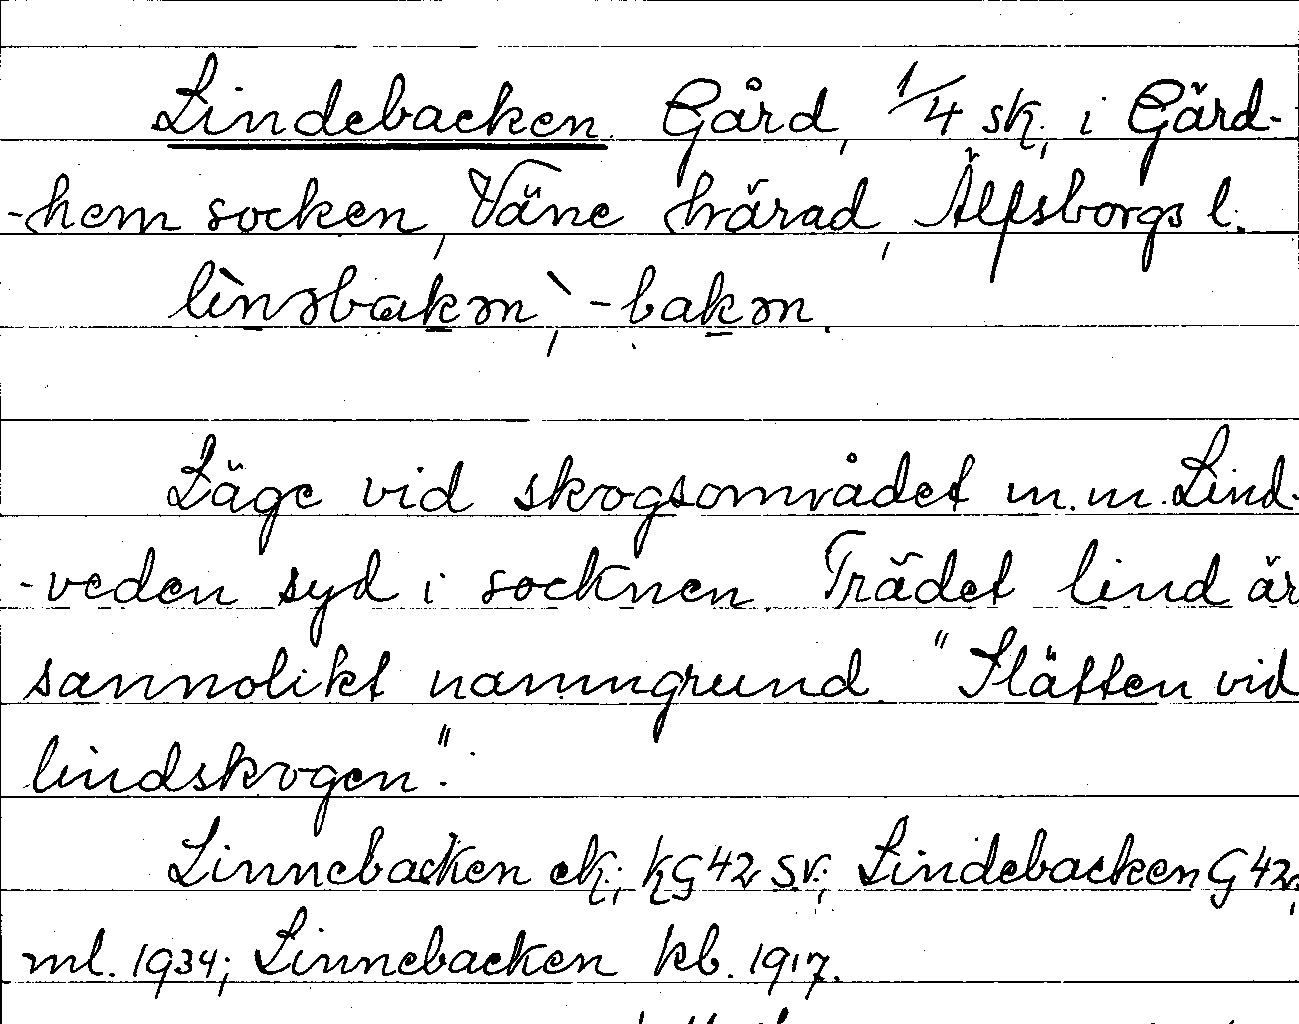 Lindebacken. Gård, 1/4 sk., i Gärd-
-hem socken, Väne härad, Älfsborgs l.
lìnəbakən, -bakən.
Läge vid skogsområdet m.m. Lind-
-veden syd i socknen. Trädet lind är
sannolikt namngrund. "Slätten vid
lindskogen".
Linnebacken ek.; KG 42 sv.; Lindebacken G 42,
ml. 1934; Linnebacken kb. 1917.